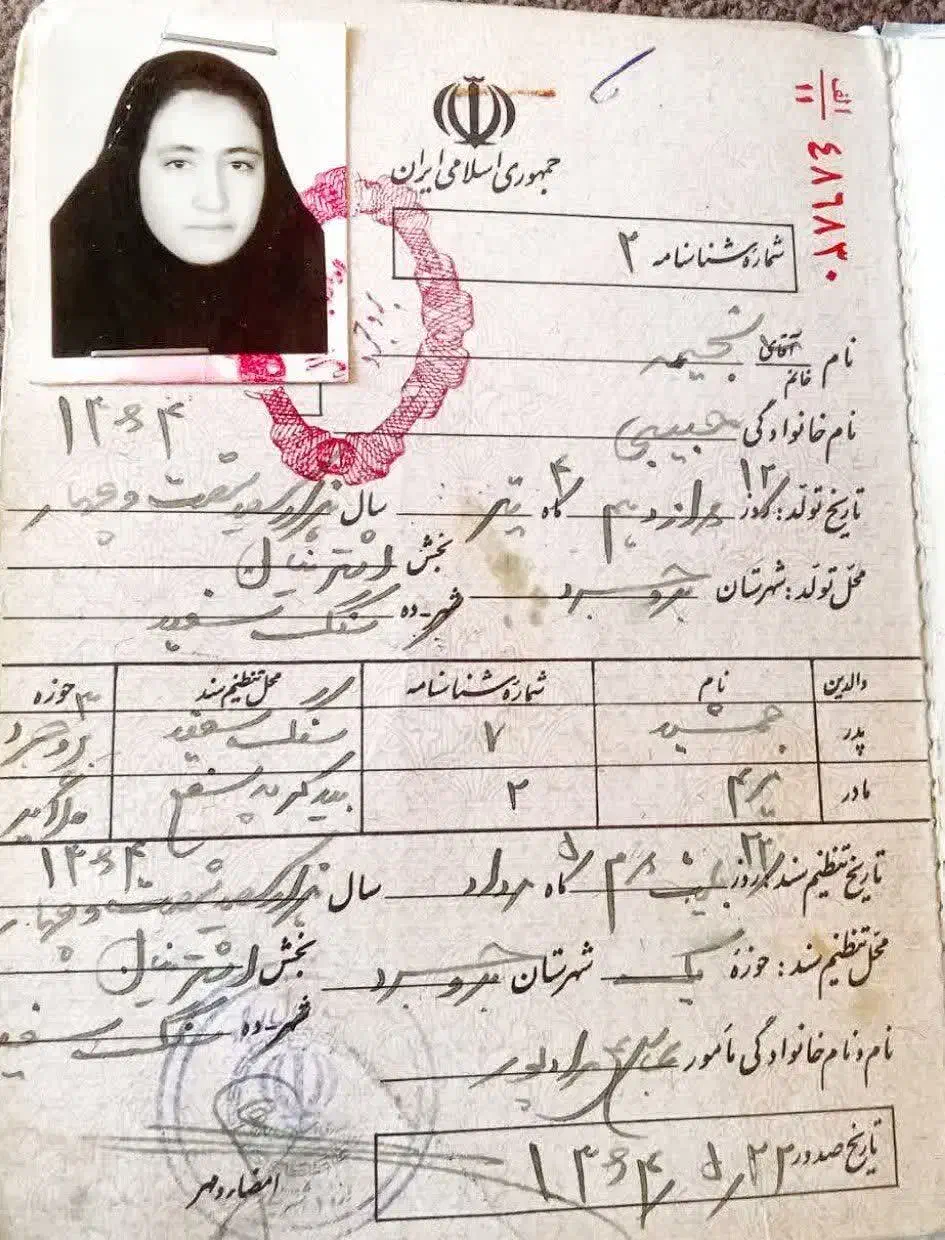 الف
۱۱
۴۸۶۸۳۰
جمهوری اسلامی ایران
شماره شناسنامه ۲
نام آقای خانم نجیمه
نام خانوادگی حبیبی
۱۳۶۴
تاریخ تولد: روز ۱۲ دوازدهم ماه ۴ تیر سال هزار و سیصد و شصت و چهار
محل تولد: شهرستان بروجرد بخش اشترینان
شهر - ده سنگ سفید
والدین نام شماره شناسنامه محل تنظیم سند حوزه
پدر جمشید ۷ سنگ سفید بروجرد
مادر مریم ۲ ملایر
۱۳۶۴
تاریخ تنظیم سند: روز ۲۲ ماه ۵ مرداد سال هزار و سیصد و شصت و چهار
محل تنظیم سند: حوزه یک شهرستان بروجرد بخش اشترینان
شهر - ده سنگ سفید
نام و نام خانوادگی مامور
تاریخ صدور ۱۳۶۴/۵/۲۲
امضاء و مهر